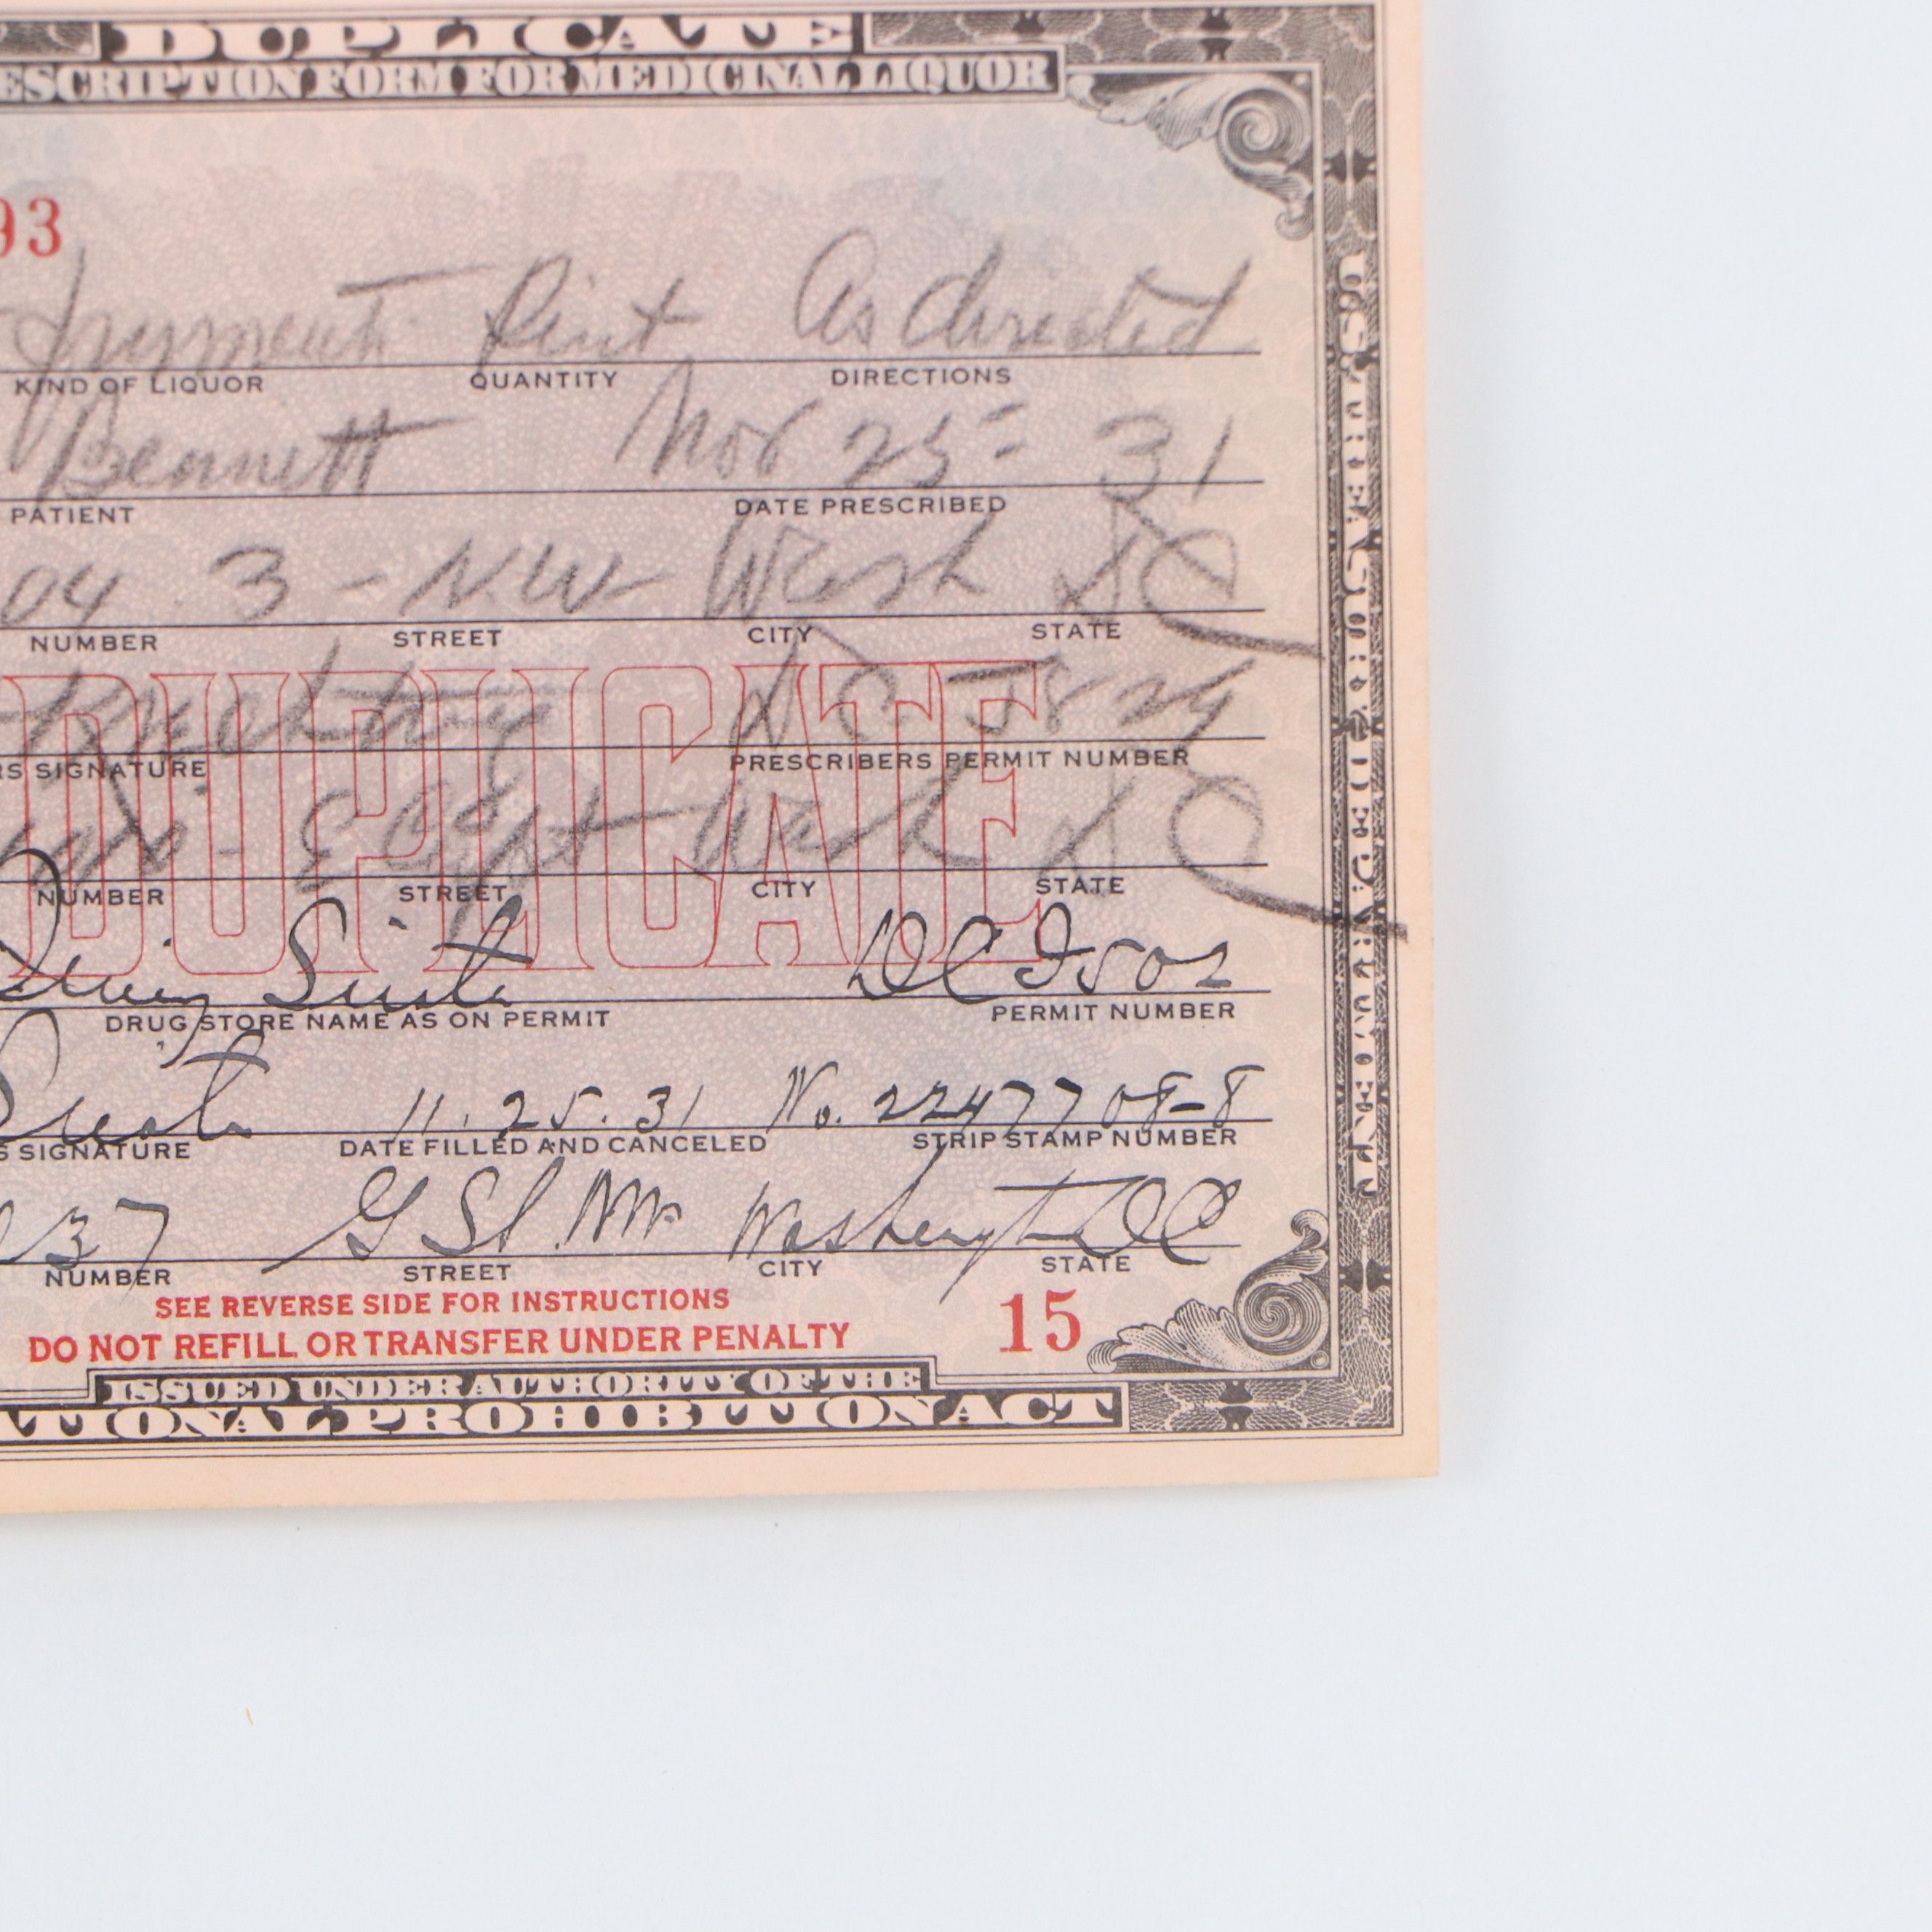 DUPLICATE
ESCRIPTION FORM FOR MEDICINAL LIQUOR
93
frumenti Pint As directed
KIND OF LIQUOR QUANTITY DIRECTIONS
Bennett Nov 25 = 31
PATIENT DATE PRESCRIBED
04 3 - N.W Wash DC
NUMBER STREET CITY STATE
DC 5829
RS SIGNATURE PRESCRIBERS PERMIT NUMBER
DUPLICATE
E Capt Wash DC
NUMBER STREET CITY STATE
DC I 502
DRUG STORE NAME AS ON PERMIT PERMIT NUMBER
11. 25. 31 No. 2247708-8
S SIGNATURE DATE FILLED AND CANCELED STRIP STAMP NUMBER
37 G St. NW Washington DC
NUMBER STREET CITY STATE
SEE REVERSE SIDE FOR INSTRUCTIONS
DO NOT REFILL OR TRANSFER UNDER PENALTY 15
ISSUED UNDER AUTHORITY OF THE
ATIONAL PROHIBITION ACT
U.S. TREASURY DEPARTMENT